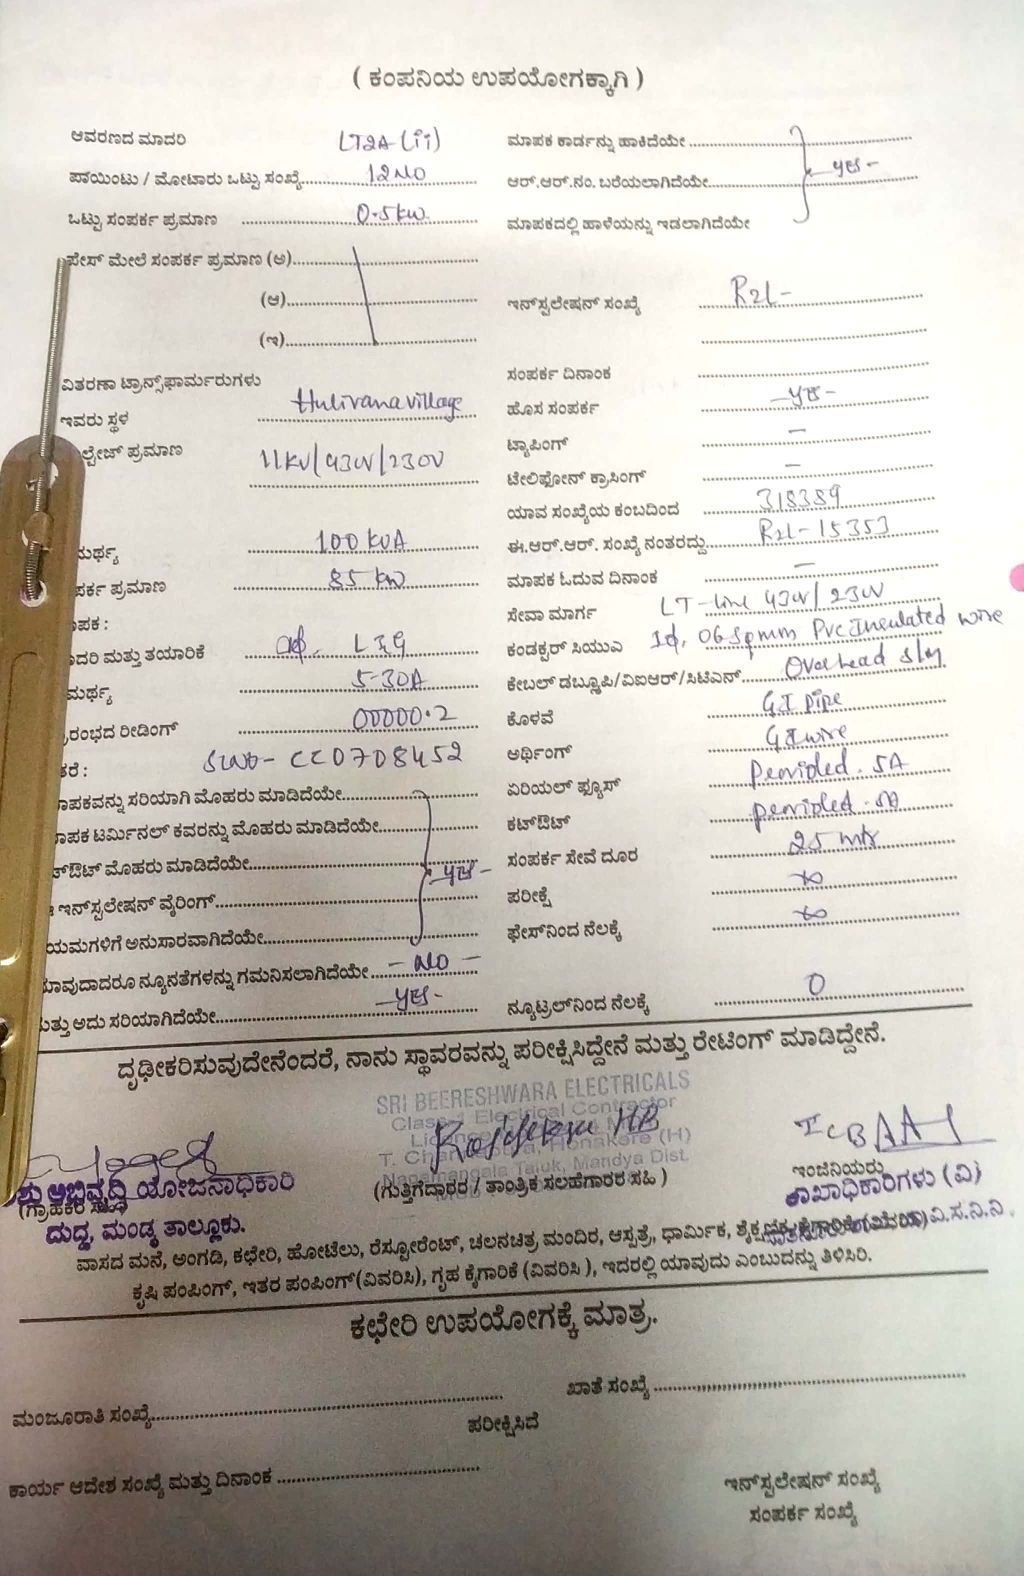 ( ಕಂಪನಿಯ ಉಪಯೋಗಕ್ಕಾಗಿ )
ಆವರಣದ ಮಾದರಿ LT2A(ii)
ಪಾಯಿಂಟು / ಮೋಟಾರು ಒಟ್ಟು ಸಂಖ್ಯೆ 12No
ಒಟ್ಟು ಸಂಪರ್ಕ ಪ್ರಮಾಣ 0.5kw
ಪೇಸ್ ಮೇಲೆ ಸಂಪರ್ಕ ಪ್ರಮಾಣ (ಅ)
(ಆ)
(ಇ)
ವಿತರಣಾ ಟ್ರಾನ್ಸ್‌ಫಾರ್ಮರುಗಳು
ಇವರು ಸ್ಥಳ Hulivana village
ಲ್ಟೇಜ್ ಪ್ರಮಾಣ 11KV/430V/230V
ಮರ್ಥ್ಯ 100 KVA
ಪರ್ಕ ಪ್ರಮಾಣ 85 kw
ಾಪಕ :
ಾದರಿ ಮತ್ತು ತಯಾರಿಕೆ L&G
ಮರ್ಥ್ಯ 5-30A
ರಂಭದ ರೀಡಿಂಗ್ 00000.2
ತರೆ : SLNO- CC0708452
ಾಪಕವನ್ನು ಸರಿಯಾಗಿ ಮೊಹರು ಮಾಡಿದೆಯೇ
ಾಪಕ ಟರ್ಮಿನಲ್ ಕವರನ್ನು ಮೊಹರು ಮಾಡಿದೆಯೇ
ಟ್‌ಔಟ್ ಮೊಹರು ಮಾಡಿದೆಯೇ yes-
ಇನ್‌ಸ್ಟಲೇಷನ್ ವೈರಿಂಗ್
ಯಮಗಳಿಗೆ ಅನುಸಾರವಾಗಿದೆಯೇ
ಾವುದಾದರೂ ನ್ಯೂನತೆಗಳನ್ನು ಗಮನಿಸಲಾಗಿದೆಯೇ - NO -
ುತ್ತು ಅದು ಸರಿಯಾಗಿದೆಯೇ - yes-
ಮಾಪಕ ಕಾರ್ಡನ್ನು ಹಾಕಿದೆಯೇ
ಆರ್.ಆರ್.ನಂ. ಬರೆಯಲಾಗಿದೆಯೇ - yes -
ಮಾಪಕದಲ್ಲಿ ಹಾಳೆಯನ್ನು ಇಡಲಾಗಿದೆಯೇ
ಇನ್‌ಸ್ಟಲೇಷನ್ ಸಂಖ್ಯೆ R2L-
ಸಂಪರ್ಕ ದಿನಾಂಕ
ಹೊಸ ಸಂಪರ್ಕ - yes -
ಟ್ಯಾಪಿಂಗ್ -
ಟೇಲಿಫೋನ್ ಕ್ರಾಸಿಂಗ್ -
ಯಾವ ಸಂಖ್ಯೆಯ ಕಂಬದಿಂದ 318389
ಈ.ಆರ್.ಆರ್. ಸಂಖ್ಯೆ ನಂತರದ್ದು R2L-15353
ಮಾಪಕ ಓದುವ ದಿನಾಂಕ -
ಸೇವಾ ಮಾರ್ಗ LT-line 430V/230V
ಕಂಡಕ್ಟರ್ ಸಿಯುಎ 1ϕ, 06 Sqmm PVC Insulated wire
ಕೇಬಲ್ ಡಬ್ಲೂಪಿ/ವಿಐಆರ್/ಸಿಟಿಎನ್ Overhead
ಕೊಳವೆ GI pipe
ಅರ್ಥಿಂಗ್ GI wire
ಏರಿಯಲ್ ಫ್ಯೂಸ್ Perovided. 5A
ಕಟ್‌ಔಟ್ perovided. 5A
ಸಂಪರ್ಕ ಸೇವೆ ದೂರ 25 mtr
ಪರೀಕ್ಷೆ ∞
ಫೇಸ್‌ನಿಂದ ನೆಲಕ್ಕೆ ∞
ನ್ಯೂಟ್ರಲ್‌ನಿಂದ ನೆಲಕ್ಕೆ 0
ದೃಢೀಕರಿಸುವುದೇನೆಂದರೆ, ನಾನು ಸ್ಥಾವರವನ್ನು ಪರೀಕ್ಷಿಸಿದ್ದೇನೆ ಮತ್ತು ರೇಟಿಂಗ್ ಮಾಡಿದ್ದೇನೆ.
SRI BEERESHWARA ELECTRICALS
Class-1 Electrical Contractor
T. Honakere (H)
Nagamangala Taluk, Mandya Dist.
ಅಭಿವೃದ್ಧಿ ಯೋಜನಾಧಿಕಾರಿ
ದುದ್ದ, ಮಂಡ್ಯ ತಾಲ್ಲೂಕು.
(ಗುತ್ತಿಗೆದಾರರ / ತಾಂತ್ರಿಕ ಸಲಹೆಗಾರರ ಸಹಿ )
ಇಂಜಿನಿಯರು
ಶಾಖಾಧಿಕಾರಿಗಳು (ವಿ)
ವಾಸದ ಮನೆ, ಅಂಗಡಿ, ಕಛೇರಿ, ಹೋಟೆಲು, ರೆಸ್ಟೋರೆಂಟ್, ಚಲನಚಿತ್ರ ಮಂದಿರ, ಆಸ್ಪತ್ರೆ, ಧಾರ್ಮಿಕ,
ಕೃಷಿ ಪಂಪಿಂಗ್, ಇತರ ಪಂಪಿಂಗ್(ವಿವರಿಸಿ), ಗೃಹ ಕೈಗಾರಿಕೆ (ವಿವರಿಸಿ ), ಇದರಲ್ಲಿ ಯಾವುದು ಎಂಬುದನ್ನು ತಿಳಿಸಿರಿ.
ಕಛೇರಿ ಉಪಯೋಗಕ್ಕೆ ಮಾತ್ರ.
ಮಂಜೂರಾತಿ ಸಂಖ್ಯೆ
ಖಾತೆ ಸಂಖ್ಯೆ
ಪರೀಕ್ಷಿಸಿದೆ
ಕಾರ್ಯ ಆದೇಶ ಸಂಖ್ಯೆ ಮತ್ತು ದಿನಾಂಕ
ಇನ್‌ಸ್ಟಲೇಷನ್ ಸಂಖ್ಯೆ
ಸಂಪರ್ಕ ಸಂಖ್ಯೆ